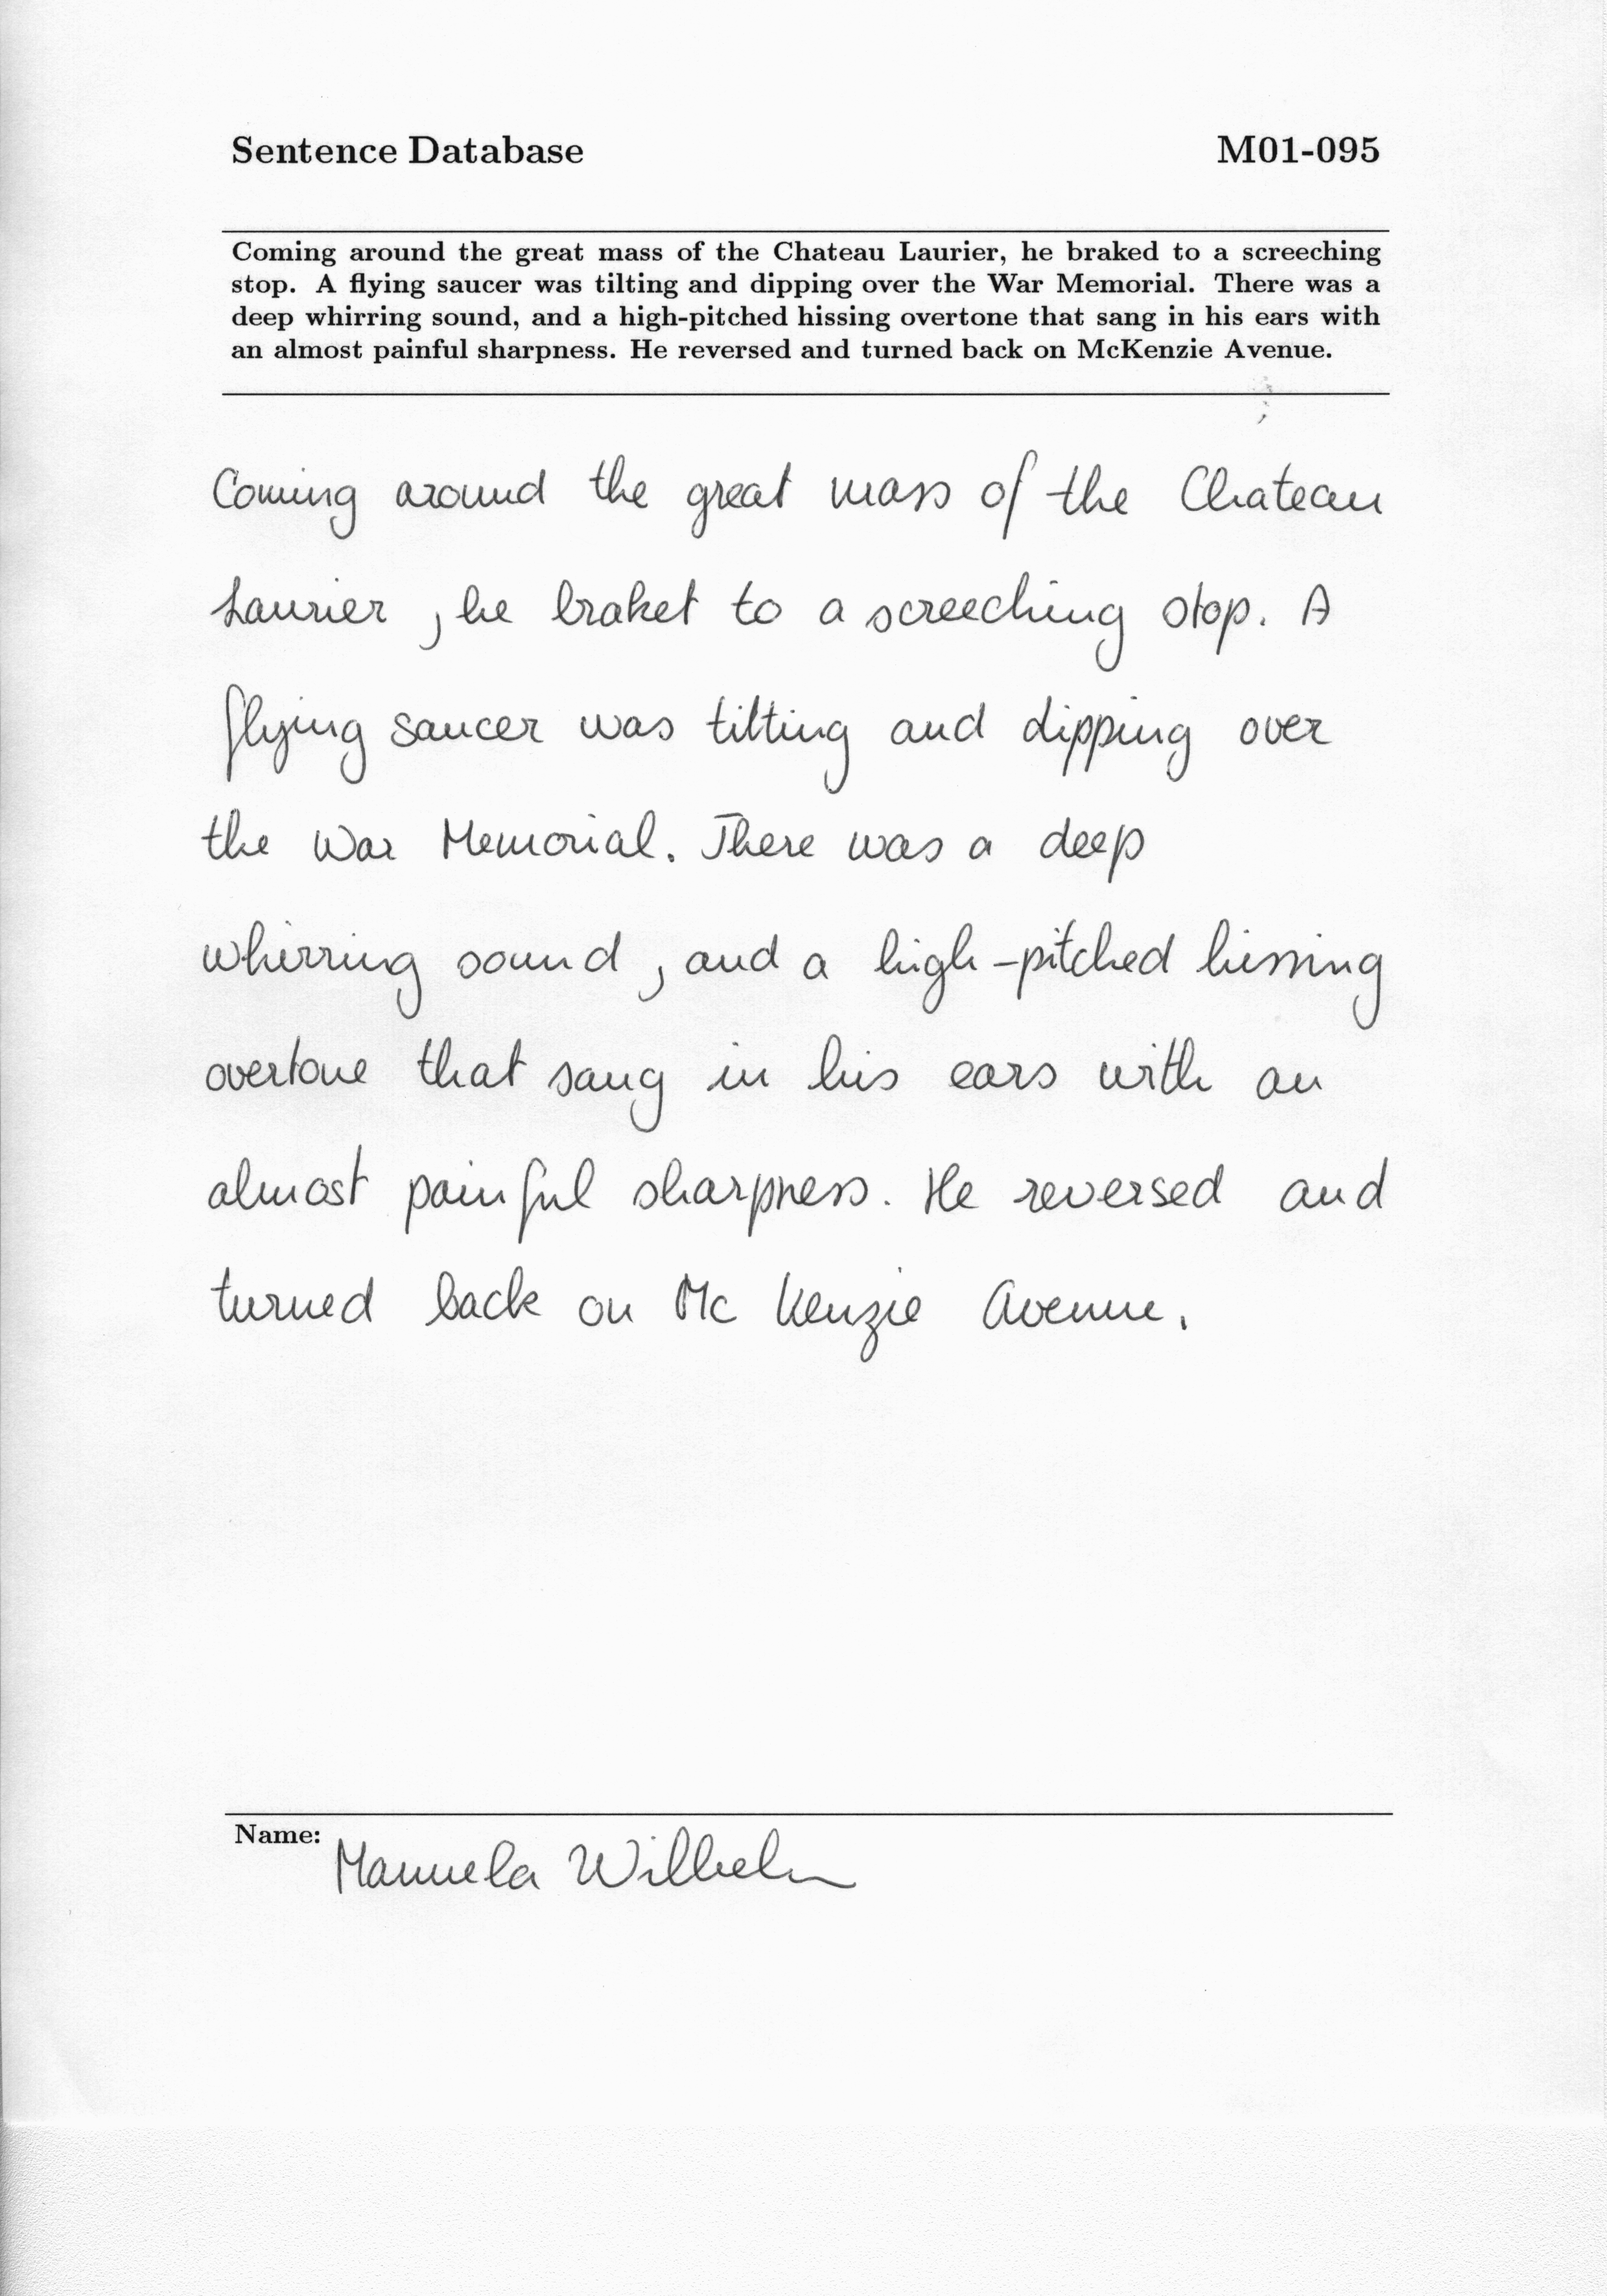 Sentence Database M01-095
Coming around the great mass of the Chateau Laurier, he braked to a screeching
stop. A flying saucer was tilting and dipping over the War Memorial. There was a
deep whirring sound, and a high-pitched hissing overtone that sang in his ears with
an almost painful sharpness. He reversed and turned back on McKenzie Avenue.
Coming around the great mass of the Chateau
Laurier, he braket to a screeching stop. A
flying saucer was tilting and dipping over
the War Memorial. There was a deep
whirring sound, and a high-pitched hissing
overtone that sang in his ears with an
almost painful sharpness. He reversed and
turned back on Mc Kenzie Avenue.
Name: Manuela Wilhelm